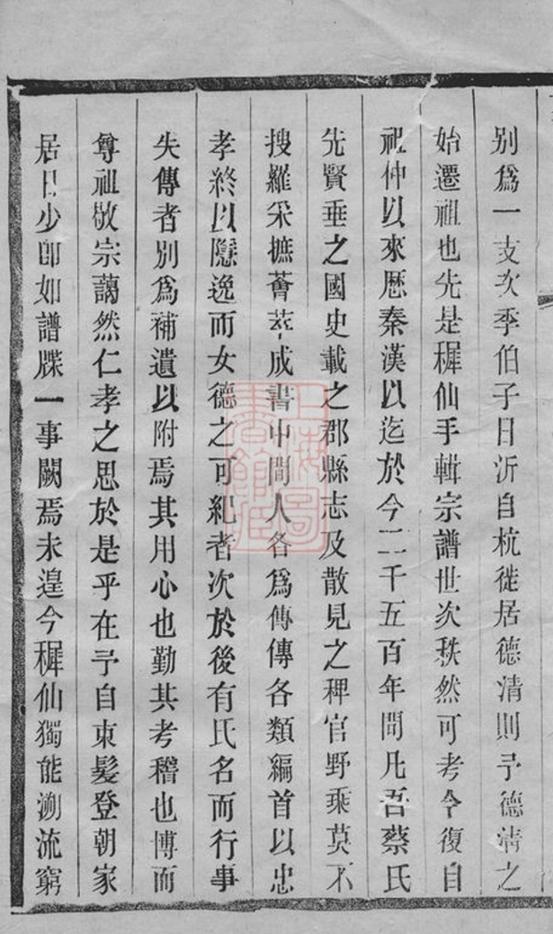 别為一支次季伯子曰沂自杭徙居德清則予德清之
始遷祖也先是穉仙手輯宗譜世次秩然可考今復自
祖仲以來歷秦漢以迄於今二千五百年間凡吾蔡氏
先賢垂之國史載之郡縣志及散見之稗官野乘莫不
搜羅采摭薈萃成書中間人各為傳傳各類編首以忠
孝終以隱逸而女德之可紀者次於後有氏名而行事
失傳者別為補遺以附焉其用心也勤其考稽也博而
尊祖敬宗藹然仁孝之思於是乎在予自束髮登朝家
居日少即如譜牒一事闕焉未遑今穉仙獨能溯流窮